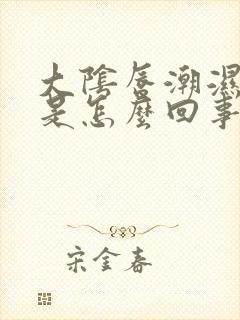 大陰唇潮濕
是怎麼回事
宋金春